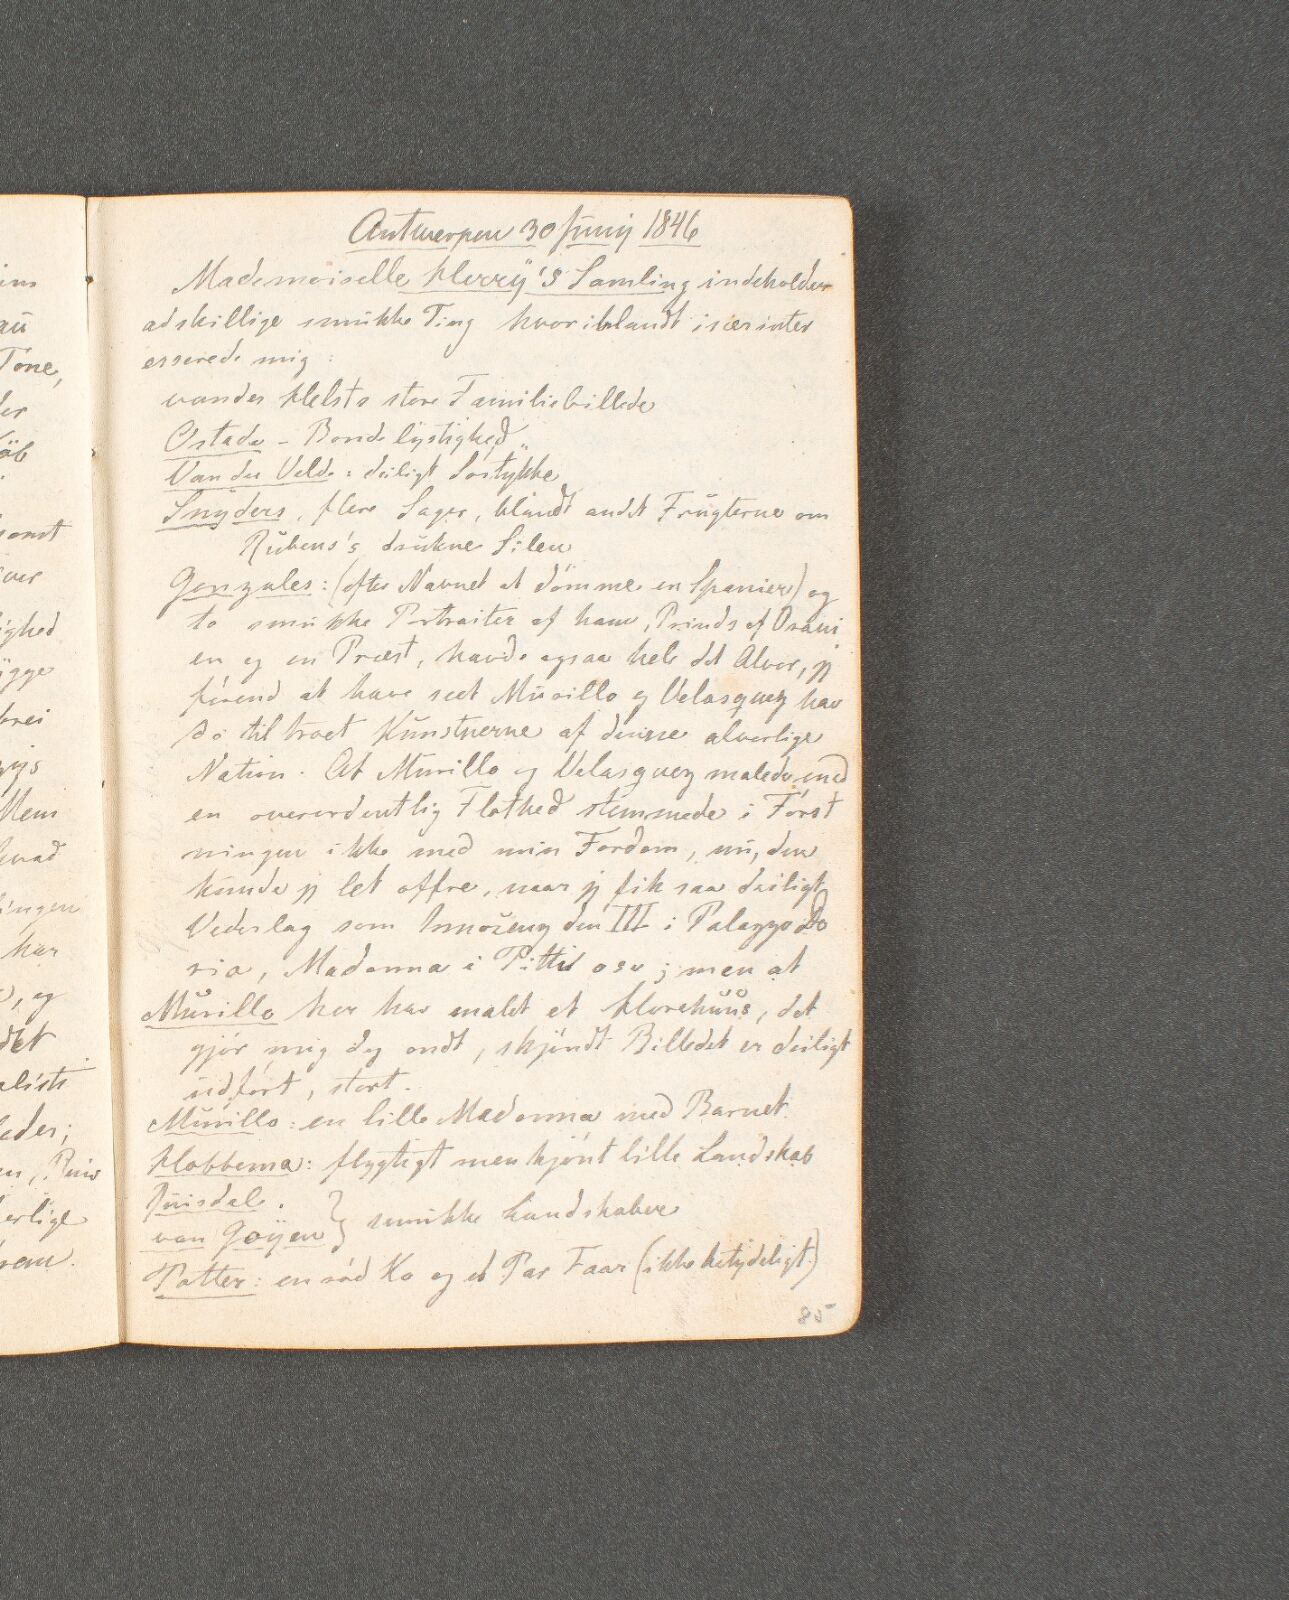 Antwerpen 30 Junij 1846
Mademoiselle Herrÿ's Samling indeholder
adskillige smukke Ting hvoriblandt især inter
esserede mig:
vander Helsts store Familiebillede
Ostade - Bondelystighed
Van der Velde: deiligt Søstykke
Snyders, flere Sager, blandt andet Frugterne om
Rubens's drukne Silen
Gonzales: (efter Navnet at dömme en Spanier) og
to smukke Portraiter af ham, Prinds af Orani
en og en Præst, havde ogsaa hele det Alvor, jeg
førend at have seet Murillo og Velasquez hav
de tiltroet Kunstnerne af denne alvorlige
Nation. At Murillo og Velasquez malede med
en overordentlig Flothed stemmede i Først
ningen ikke med min Fordom, nu, den
kunde jeg let offre, naar jeg fik saa deiligt
Vederlag som Innozenz den III i Palazzo Do
ria, Madonna i Pitti osv; men at
Murillo her har malet et Horehuus, det
gjör mig dog ondt, skjöndt Billedet er deiligt
udført, stort.
Murillo: en lille Madonna med Barnet.
Hobbema: flygtigt men kjönt lille Landskab
Ruisdal.
van Goÿen } smukke Landskaber
Potter: en rød Ko og et Par Faar (ikke betydeligt)
85
ins
au
Tone,
der
somt
ver
ighed
ygge
Mem
hvad
ingen
har
), og
det
alisti
leder;
erlige